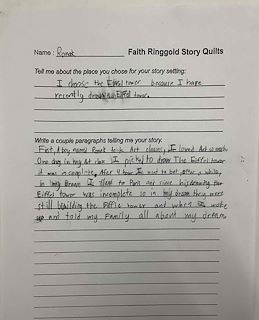 Name: Ronak Faith Ringgold Story Quilts
Tell me about the place you chose for your story setting:
I choose the Eiffel tower because I have
recently tower.
Write a couple paragraphs telling me your story.
First, A boy named Ronak took Art classes, I loved Art so much.
One day in my Art class I picked to draw The Eiffel tower
it was incomplete. After 1 hour I went to bed. After a while,
in my Dream I went to Paris and since his drawing the
Eiffel tower was incomplete so in my dream they were
still building the Eiffle tower and when I woke
up and told my family all about my dream.